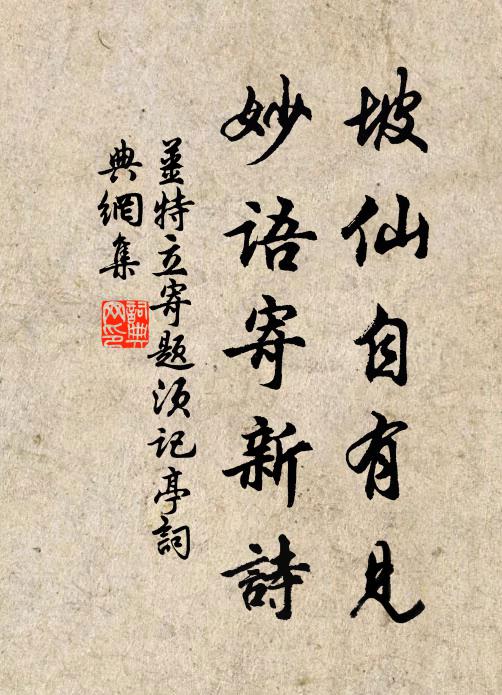 坡仙自有見
妙語寄新詩
薑特立寄題須記亭詞
典網集
詞典
网印